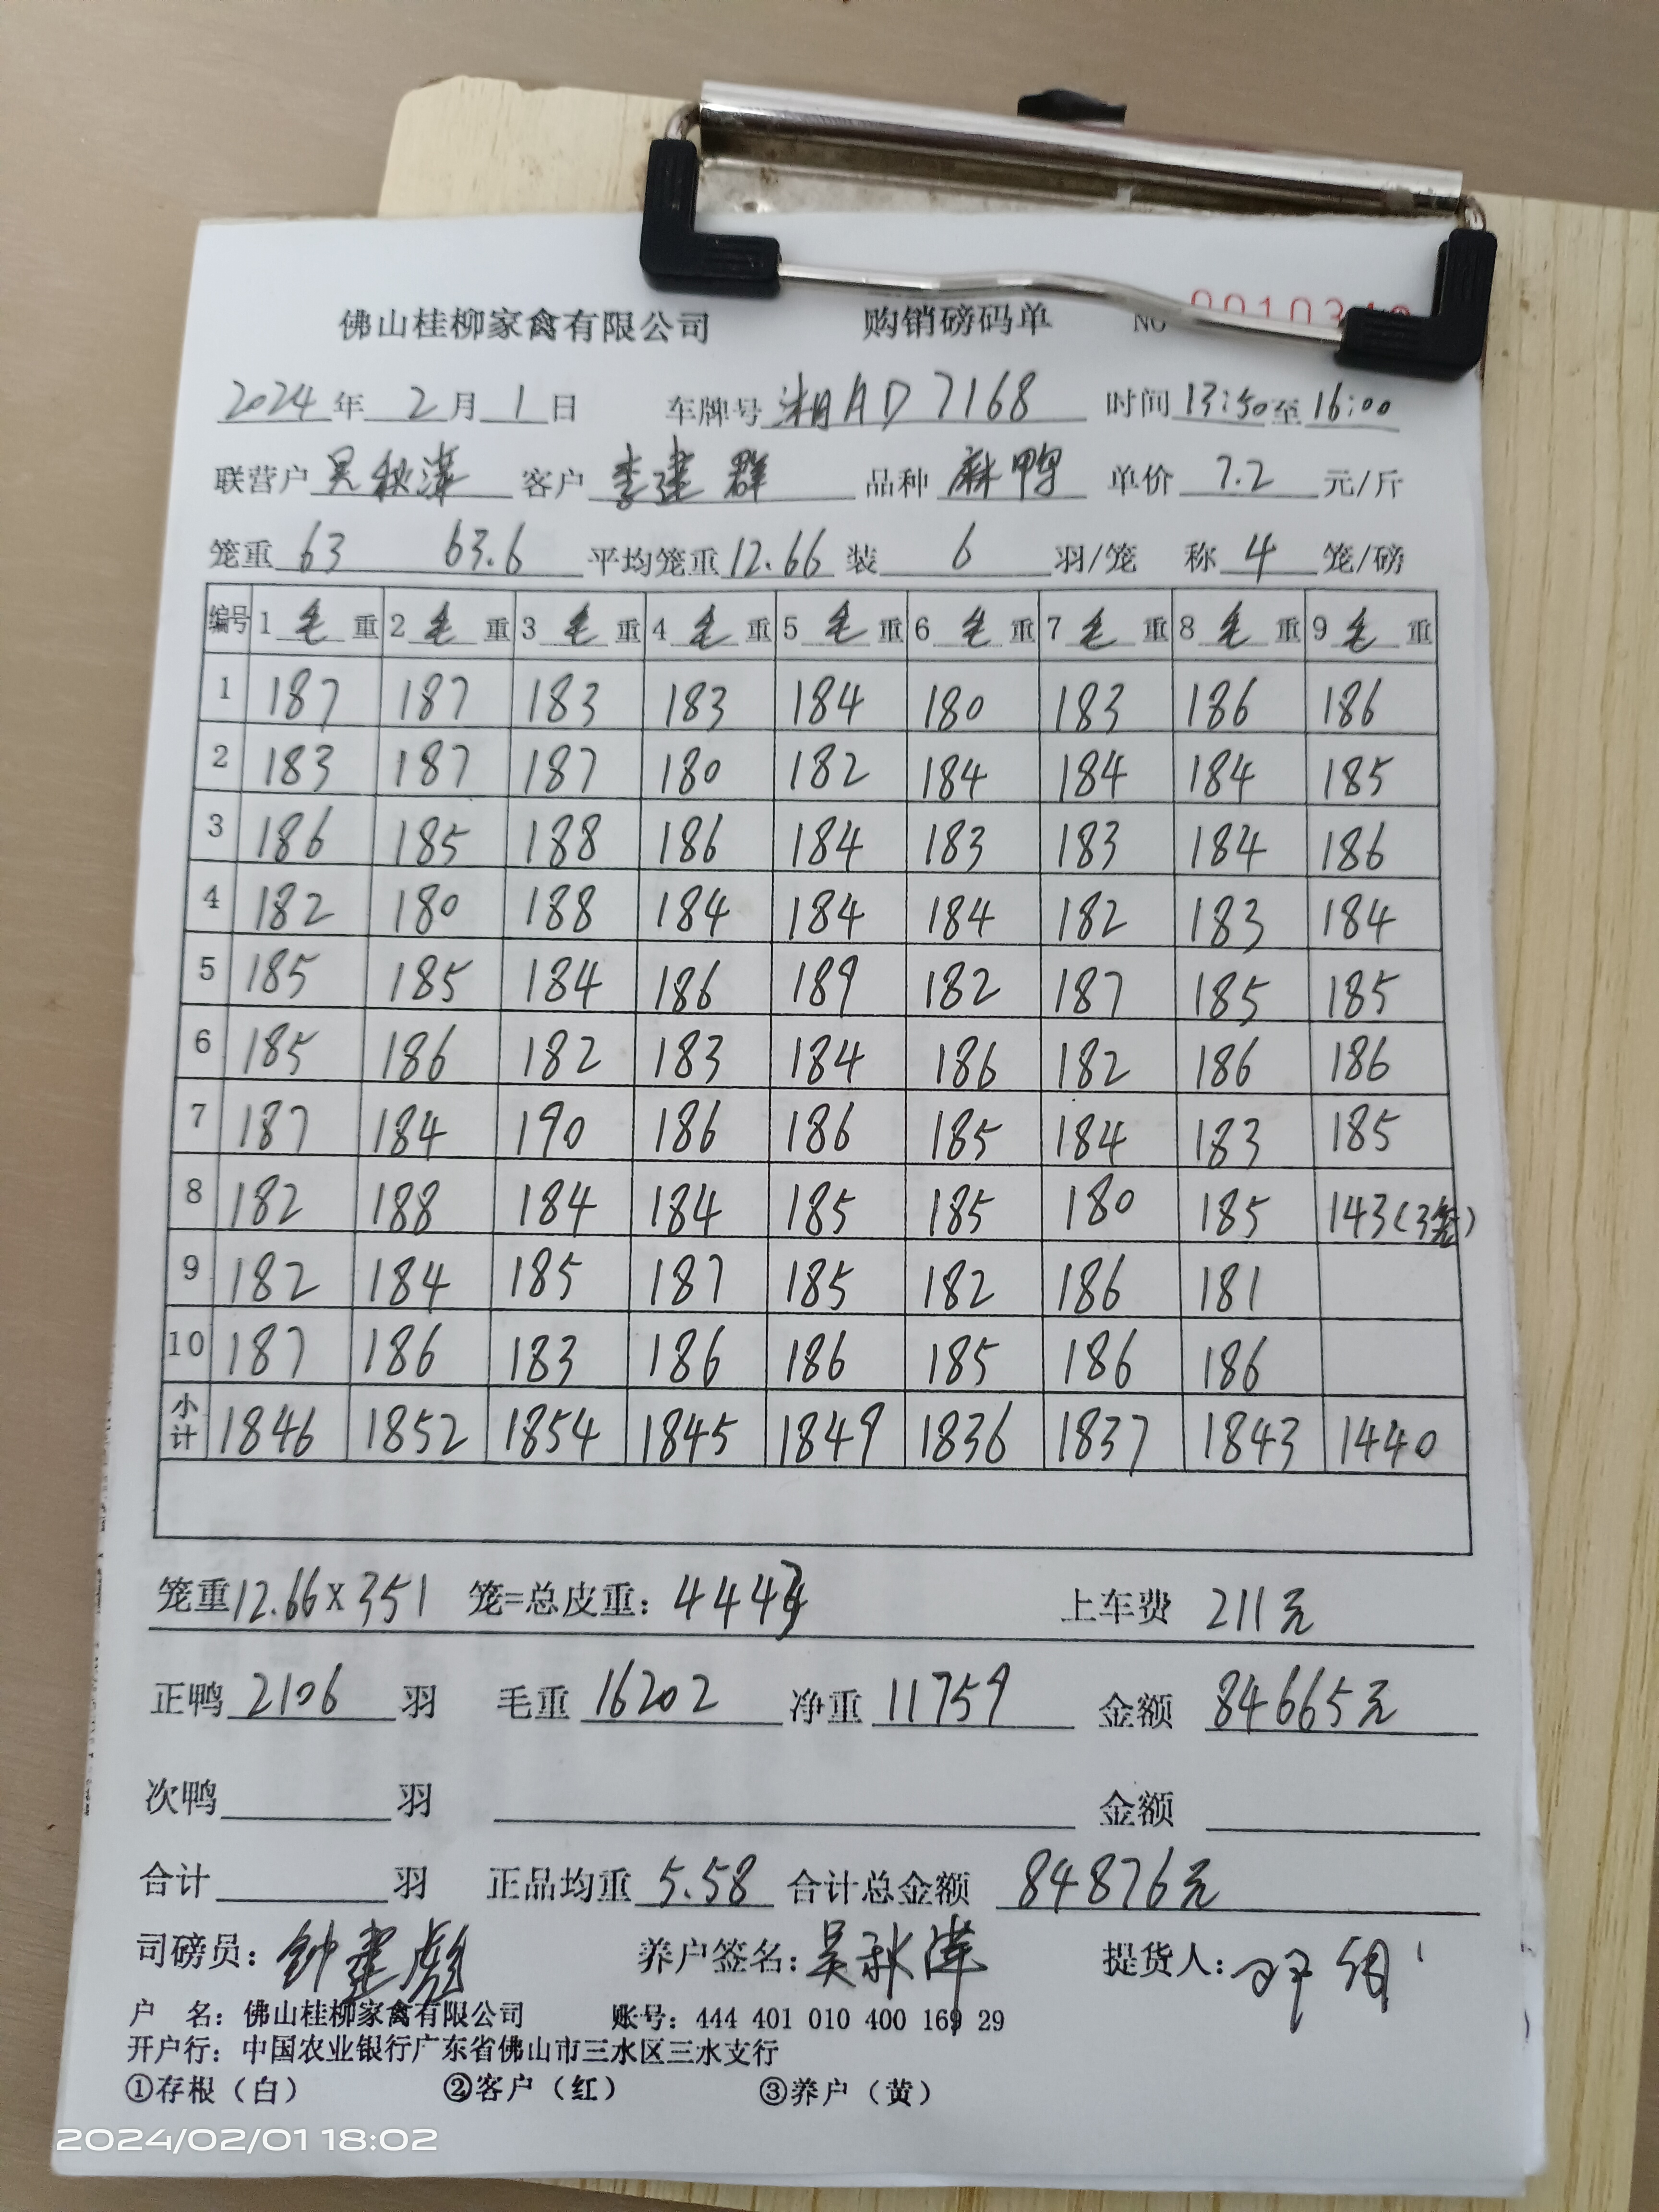 佛山桂柳家禽有限公司 购销磅码单 NO
2024年2月1日 车牌号湘AD7168 时间13:50至16:00
联营户吴秋洋 客户李建群 品种麻鸭 单价7.2元/斤
笼重63 63.6 平均笼重12.66装6羽/笼 称4笼/磅
编号 1毛重 2毛重 3毛重 4毛重 5毛重 6毛重 7毛重 8毛重 9毛重
1 187 187 183 183 184 180 183 186 186
2 183 187 187 180 182 184 184 184 185
3 186 185 188 186 184 183 183 184 186
4 182 180 188 184 184 184 182 183 184
5 185 185 184 186 189 182 187 185 185
6 185 186 182 183 184 186 182 186 186
7 187 184 190 186 186 185 184 183 185
8 182 188 184 184 185 185 180 185 143(3笼)
9 182 184 185 187 185 182 186 181
10 187 186 183 186 186 185 186 186
小计 1846 1852 1854 1845 1849 1836 1837 1843 1440
笼重12.66×351 笼=总皮重：4443 上车费 211元
正鸭2106羽 毛重16202 净重11759 金额 84665元
次鸭 羽 金额
合计 羽 正品均重5.58 合计总金额 84876元
司磅员：钟建彪 养户签名：吴秋洋 提货人：
户 名：佛山桂柳家禽有限公司 账号：444 401 010 400 169 29
开户行：中国农业银行广东省佛山市三水区三水支行
①存根（白） ②客户（红） ③养户（黄）
2024/02/01 18:02